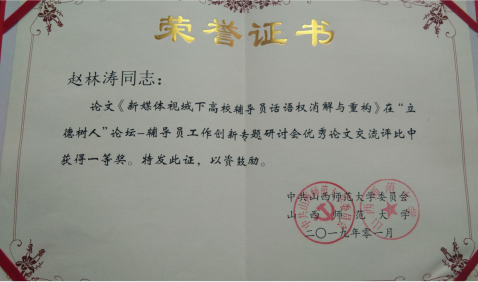 荣誉证书
赵林涛同志：
论文《新媒体视域下高校辅导员话语权消解与重构》在“立
德树人”论坛-辅导员工作创新专题研讨会优秀论文交流评比中
获得一等奖。特发此证，以资鼓励。
中共山西师范大学委员会
山西师范大学
二〇一九年零一月